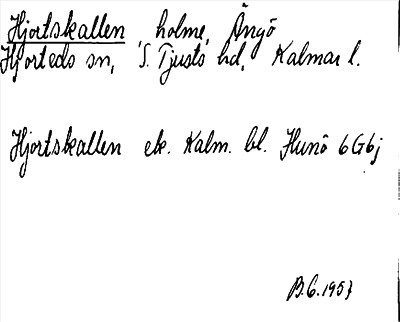 Hjortskallen holme, Ängö
Hjorteds sn, S. Tjusts hd, Kalmar l.
Hjortskallen ek. Kalm. bl. Hunö 6G6j
B.G.1957